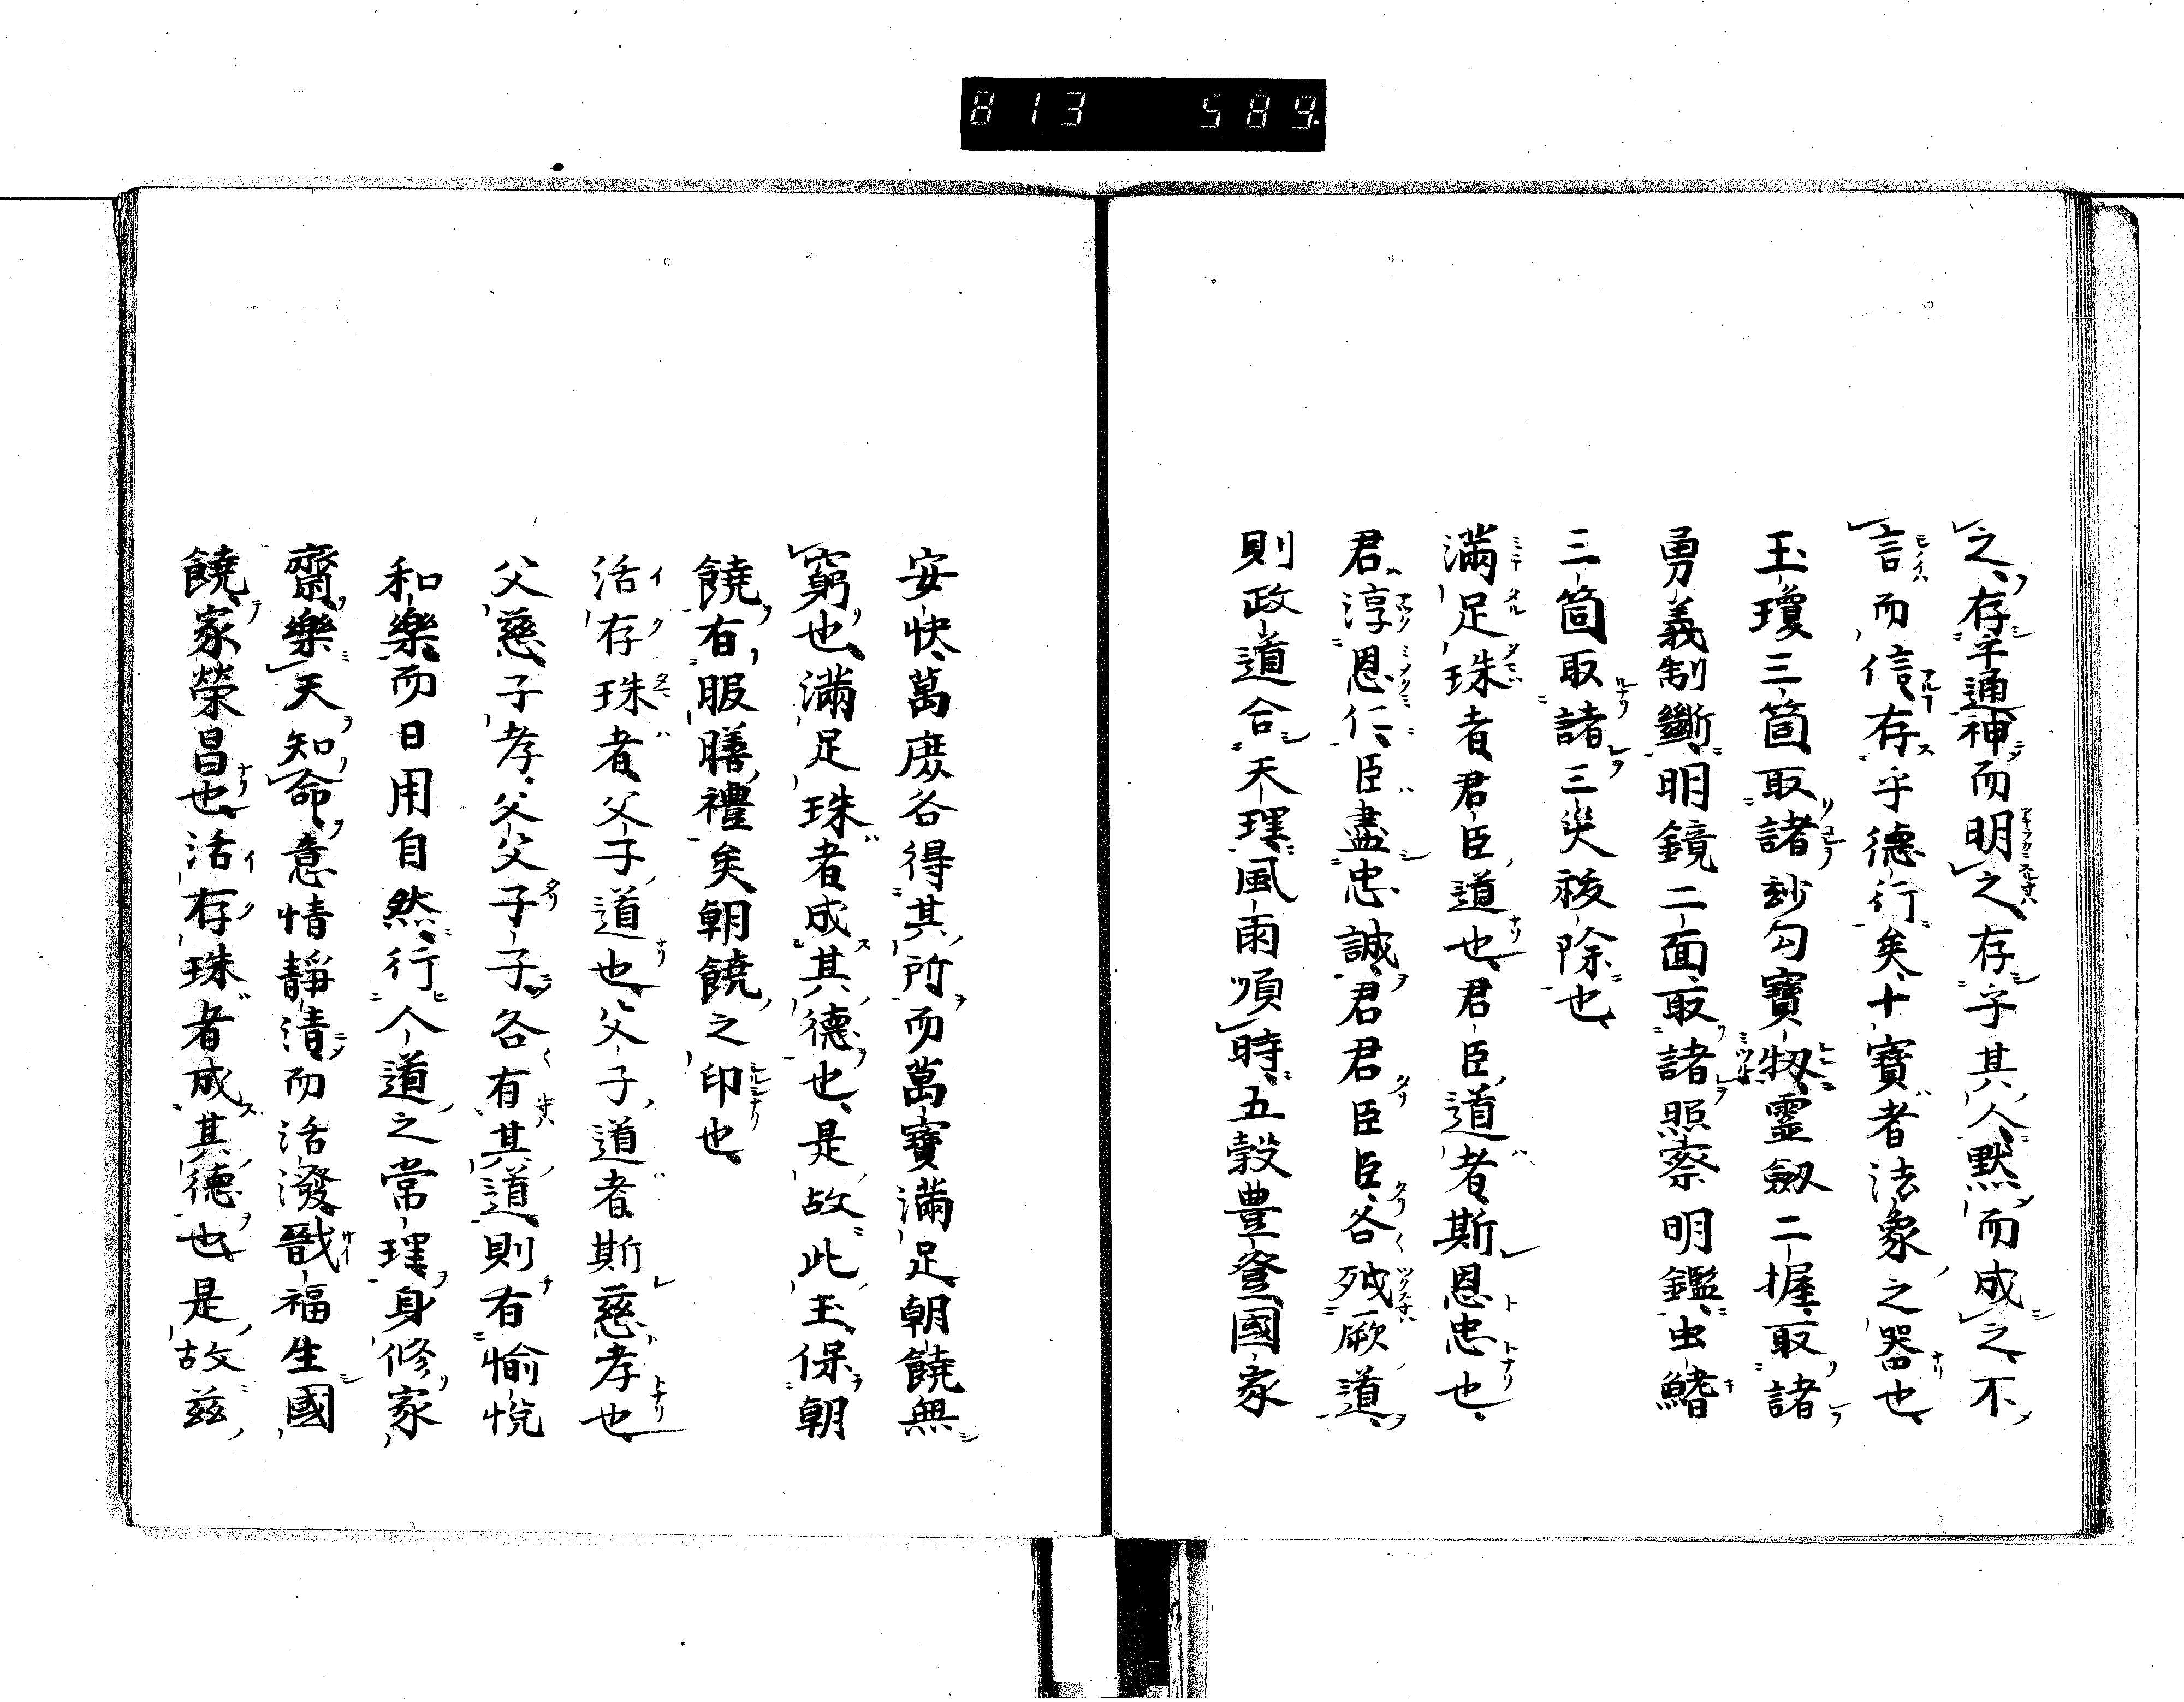 813 589
之、存乎通神而明之、存乎其人、默而成之、不
言而信、存乎德行矣、十寶者法象之器也、
玉瓊三箇、取諸玅勾寶物、靈劔二握、取諸
勇義制斷、明鏡二面、取諸照察明鑑、虫鰭
三箇取諸三災祓除也、
滿足珠者君臣道也、君臣道者、斯恩忠也、
君淳恩仁、臣盡忠誠、君君臣臣、各殘厥道、
則政道合天理、風雨順時、五穀豐登、國家
安快、萬庶各得其所、而萬寶滿足、朝饒無
窮也、滿足珠者成其德也、是故此玉、保朝
饒有服膳禮矣、朝饒之印也、
活存珠者父子道也、父子道者斯慈孝也、
父慈子孝、父父子子各有其道、則有愉悅
和樂而日用自然、行人道之常理、身修家
齋、樂天知命、意情靜清而活潑、戩福生國
饒、家榮昌也、活存珠者成其德也、是故茲